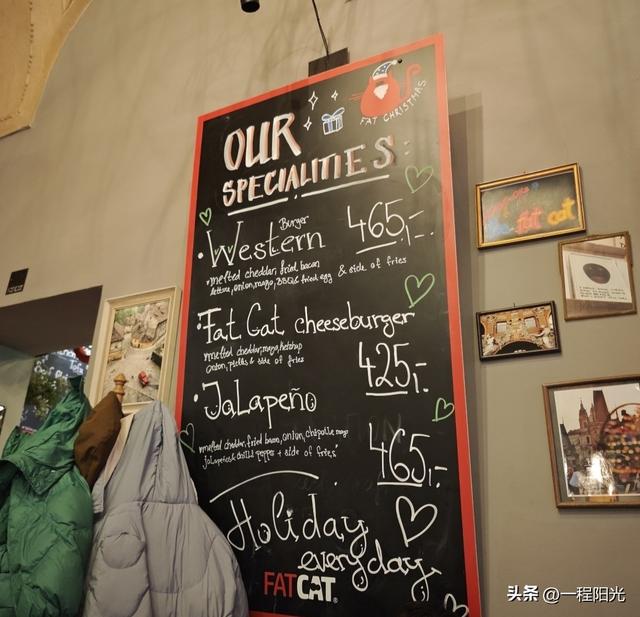 FAT CHRISTMAS
OUR
SPECIALITIES:
Burger
Western 465,-
melted cheddar, fried bacon
lettuce, onion, mayo, BBQ & fried egg & side of fries
Fat Cat cheeseburger
melted cheddar, mayo, ketchup
onion, pickles & side of fries
425,-
JaLapeño
melted cheddar, fried bacon, onion, chipotle mayo
jalapeños & chilli pepper + side of fries
465,-
Holiday
everyday
FATCAT®
fat cat
头条 @一程阳光